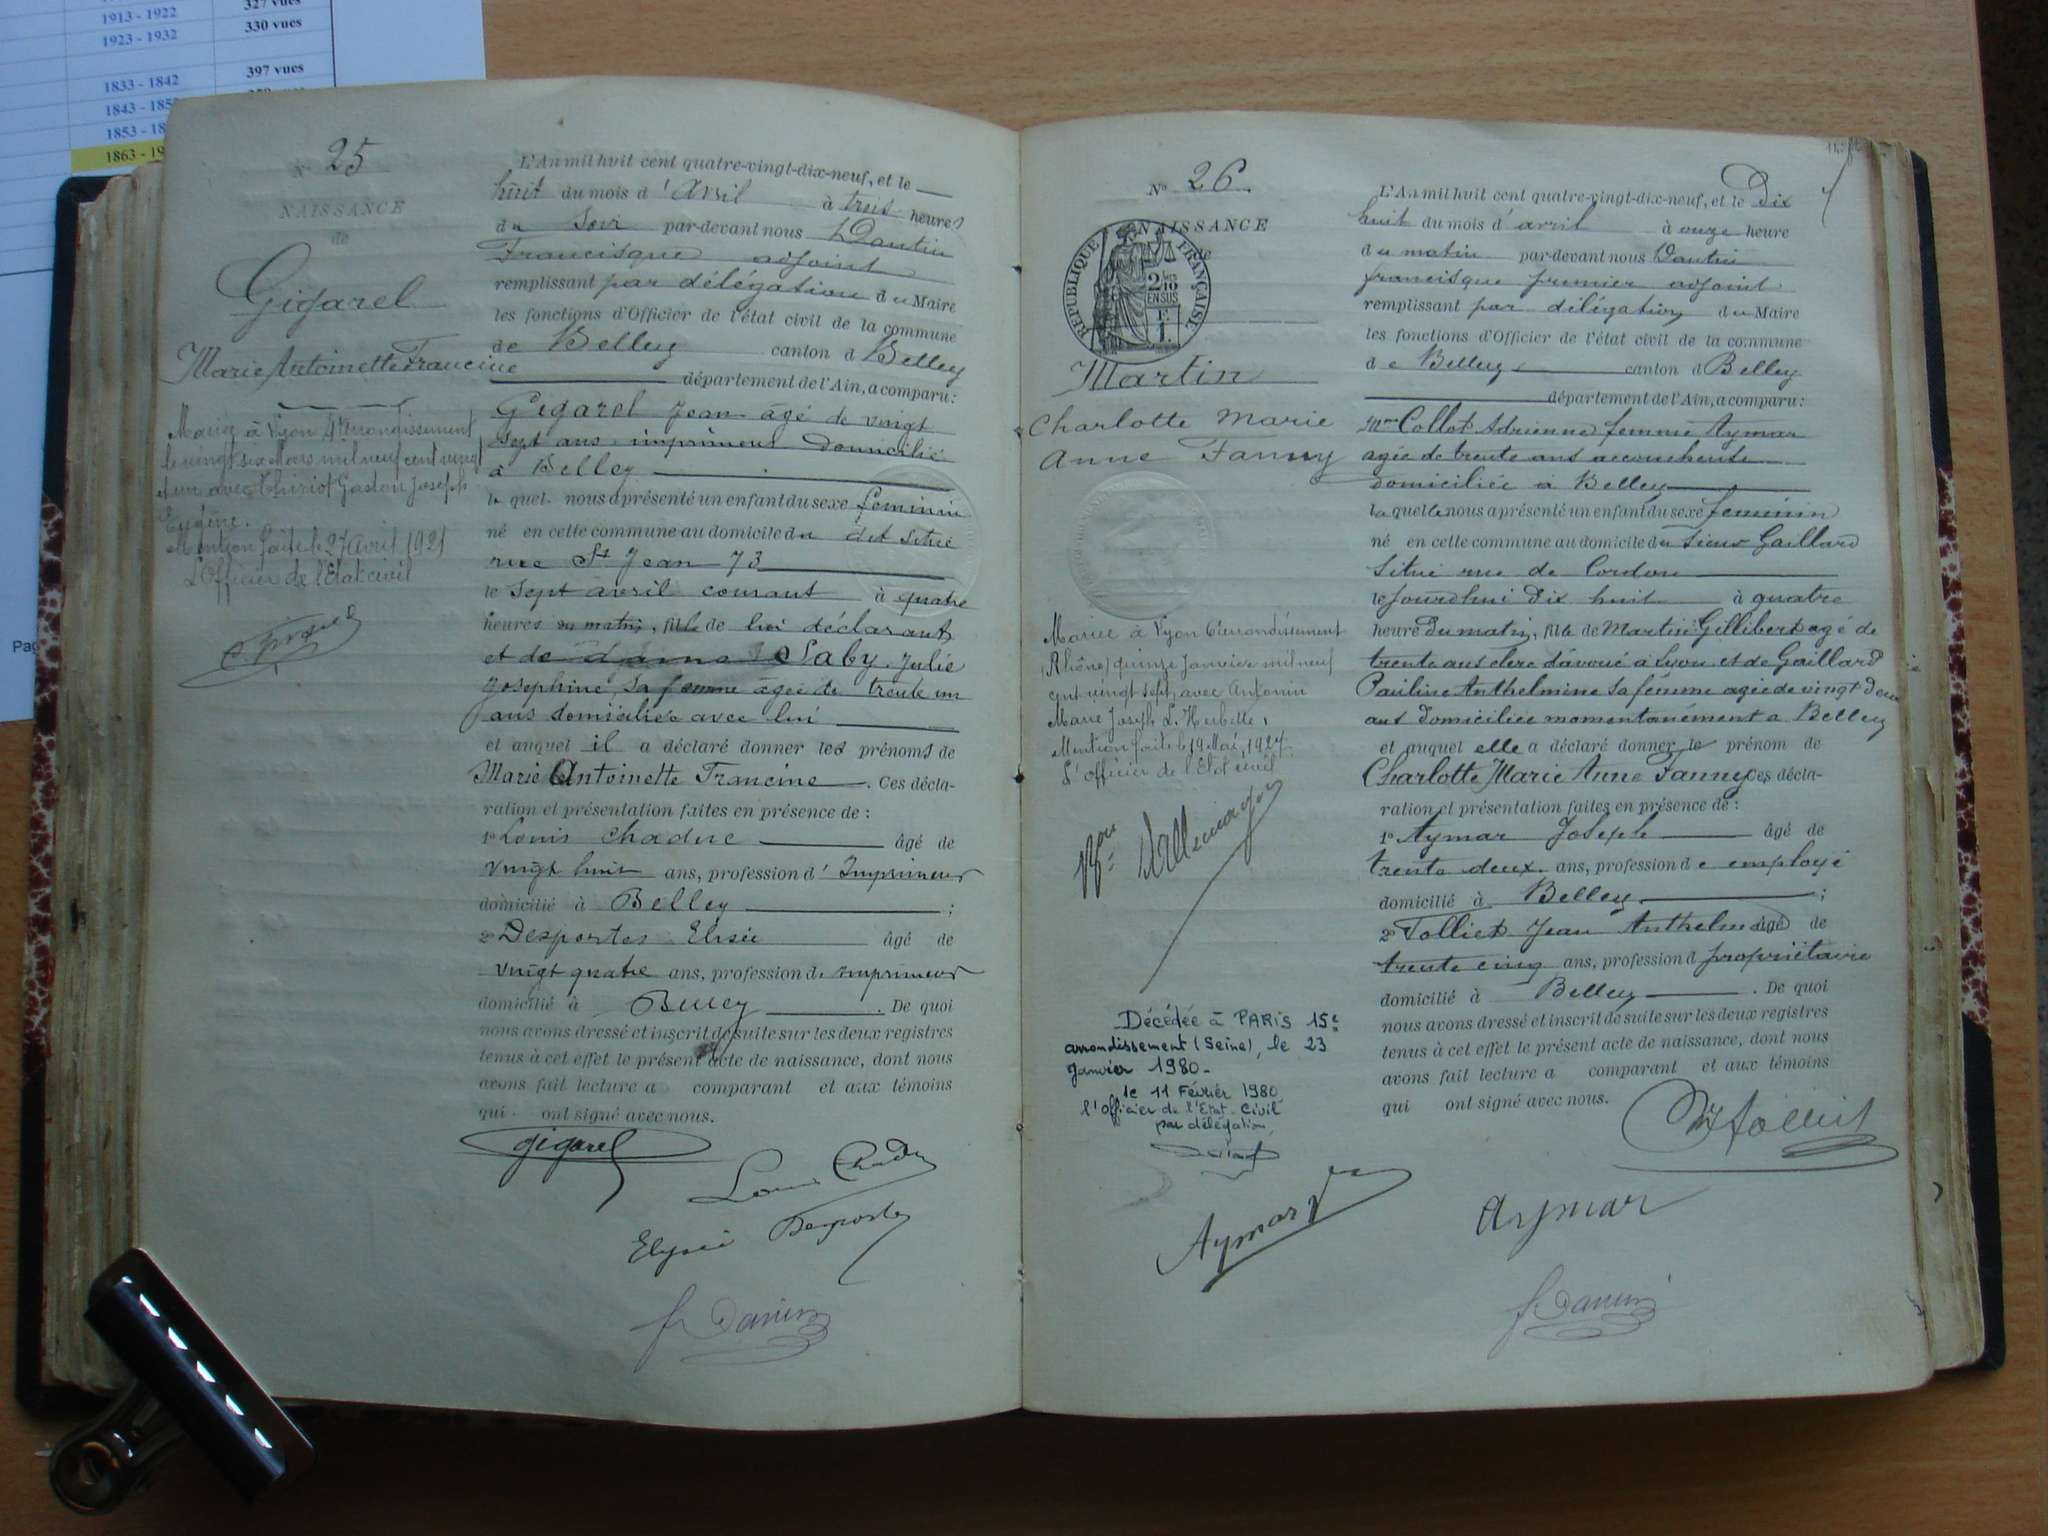 1913 - 1922
327 vues
1923 - 1932
330 vues
1833 - 1842
397 vues
1843 - 185
1853 - 18
1863 - 19
Pag
N° 25
NAISSANCE
de
Gigarel
Marie Antoinette Francine
Mariée à Lyon 4e arrondissement
le vingt six Mars mil neuf cent vingt
et un avec Thuriot Gaston Joseph
Eugène.
Mention faite le 27 avril 1921
L'Officier de l'Etat civil
L'An mil huit cent quatre-vingt-dix-neuf, et le
huit du mois d'Avril à trois heures
du Soir par-devant nous Dantin
Francisque adjoint
remplissant par délégation du Maire
les fonctions d'Officier de l'état civil de la commune
de Belley canton d Belley
département de l'Ain, a comparu:
Gigarel Jean âgé de vingt
sept ans imprimeur domicilié
à Belley
le quel nous a présenté un enfant du sexe féminin
né en cette commune au domicile du dit situé
rue St Jean 73
le Sept avril courant à quatre
heures du matin, fille de lui déclarant
et de Saby Julie
Josephine sa femme âgée de trente un
ans domiciliée avec lui
et auquel il a déclaré donner les prénoms de
Marie Antoinette Francine. Ces décla-
ration et présentation faites en présence de :
1° Louis Chaduc âgé de
vingt huit ans, profession d'Imprimeur
domicilié à Belley ;
2° Desportes Elisée âgé de
vingt quatre ans, profession de imprimeur
domicilié à Belley. De quoi
nous avons dressé et inscrit de suite sur les deux registres
tenus à cet effet le présent acte de naissance, dont nous
avons fait lecture a comparant et aux témoins
qui ont signé avec nous.
Gigarel
Louis Chaduc
Elysée Desportes
f. Dantin
N° 26
NAISSANCE
de
RÉPUBLIQUE FRANÇAISE
2/10 EN SUS
F. 1.
Martin
Charlotte Marie
Anne Fanny
Mariée à Lyon 6e arrondissement
(Rhône) quinze Janvier mil neuf
cent vingt sept, avec Antonin
Marie Joseph L'Herbette,
Mention faite le 19 Mai 1927
L'officier de l'Etat civil
Décédée à PARIS 15e
arrondissement (Seine), le 23
Janvier 1980-
le 11 Février 1980
l'officier de l'Etat-Civil
par délégation,
L'An mil huit cent quatre-vingt-dix-neuf, et le Dix
huit du mois d'avril à onze heure
du matin par-devant nous Dantin
francisque premier adjoint
remplissant par délégation du Maire
les fonctions d'Officier de l'état civil de la commune
de Belley canton d Belley
département de l'Ain, a comparu:
Mme Collot Adrienne femme Aymar
agée de trente ans accoucheuse
domiciliée à Belley
la quelle nous a présenté un enfant du sexe féminin
né en cette commune au domicile du Sieur Gaillard
situé rue de Cordon
le jourd'hui dix huit à quatre
heure du matin, fille de Martin Gillibert agé de
trente ans clerc d'avoué à Lyon et de Gaillard
Pauline Anthelmine sa femme agée de vingt deux
ans domiciliée momentanément a Belley
et auquel elle a déclaré donner le prénom de
Charlotte Marie Anne Fanny Ces décla-
ration et présentation faites en présence de :
1° Aymar Joseph âgé de
trente deux ans, profession de employé
domicilié à Belley ;
2° Tolliet Jean Anthelme âgé de
trente cinq ans, profession d propriétaire
domicilié à Belley. De quoi
nous avons dressé et inscrit de suite sur les deux registres
tenus à cet effet le présent acte de naissance, dont nous
avons fait lecture a comparant et aux témoins
qui ont signé avec nous.
Tolliet
Aymar
Aymar
f. Dantin